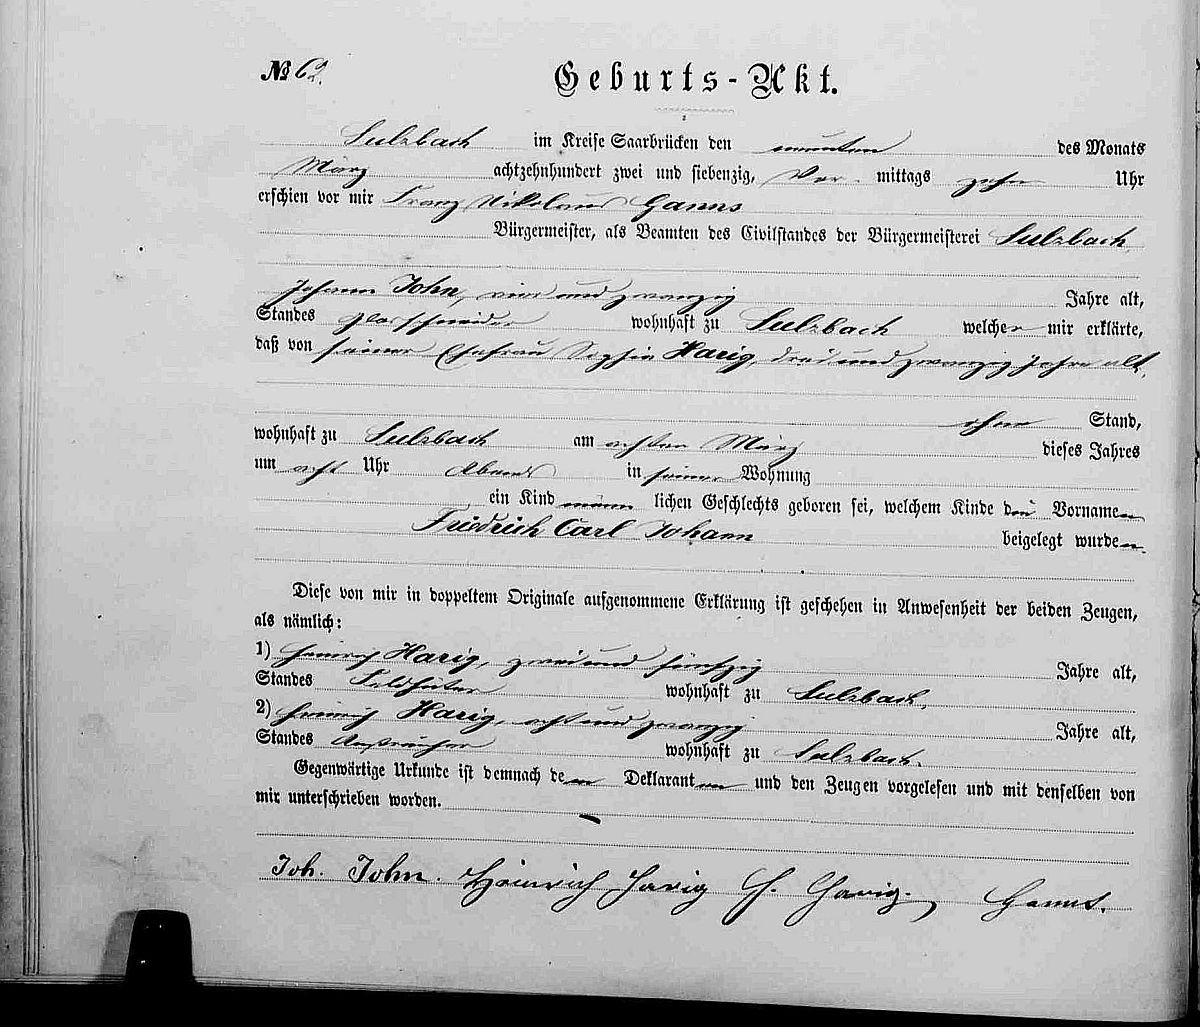 № 62.
Geburts-Akt.
Sulzbach im Kreise Saarbrücken den neunten des Monats
März achtzehnhundert zwei und siebenzig, Vor- mittags zehn Uhr
erschien vor mir Franz Nikolaus Ganns
Bürgermeister, als Beamten des Civilstandes der Bürgermeisterei Sulzbach
Johann John, vier und zwanzig Jahre alt,
Standes Glasschneider wohnhaft zu Sulzbach welcher mir erklärte,
daß von seiner Ehefrau Sophia Harig, drei und zwanzig Jahre alt,
ohne Stand,
wohnhaft zu Sulzbach am achten März dieses Jahres
um acht Uhr Abends in seiner Wohnung
ein Kind männlichen Geschlechts geboren sei, welchem Kinde die Vornamen
Friedrich Carl Johann beigelegt wurden.
Diese von mir in doppeltem Originale aufgenommene Erklärung ist geschehen in Anwesenheit der beiden Zeugen,
als nämlich:
1) Heinrich Harig, zwei und fünfzig Jahre alt,
Standes Feldhüter wohnhaft zu Sulzbach,
2) Heinrich Harig, acht und zwanzig Jahre alt,
Standes Anstreicher wohnhaft zu Sulzbach.
Gegenwärtige Urkunde ist demnach dem Deklaranten und den Zeugen vorgelesen und mit denselben von
mir unterschrieben worden.
Joh. John. Heinrich Harig H. Harig. Ganns.